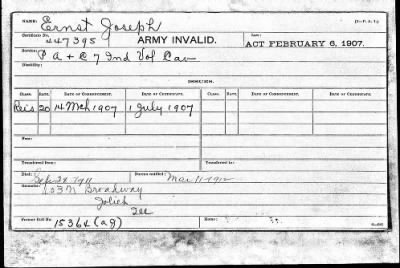 NAME: Ernst Joseph
Certificate No. 447395 ARMY INVALID. Law: ACT FEBRUARY 6, 1907.
Service: P A + C 7 Ind Vol Cav
Disability:
CLASS. RATE. DATE OF COMMENCEMENT. DATE OF CERTIFICATE. CLASS. RATE. DATE OF COMMENCEMENT. DATE OF CERTIFICATE.
Reis 20 14 Mch 1907 1 July 1907
Transferred from: Transferred to:
Died: 1911 Bureau notified: Mar 11-1912
Remarks: 103 N Broadway
Joliet
Ill
Former Roll No. 15364 (ag) Home: